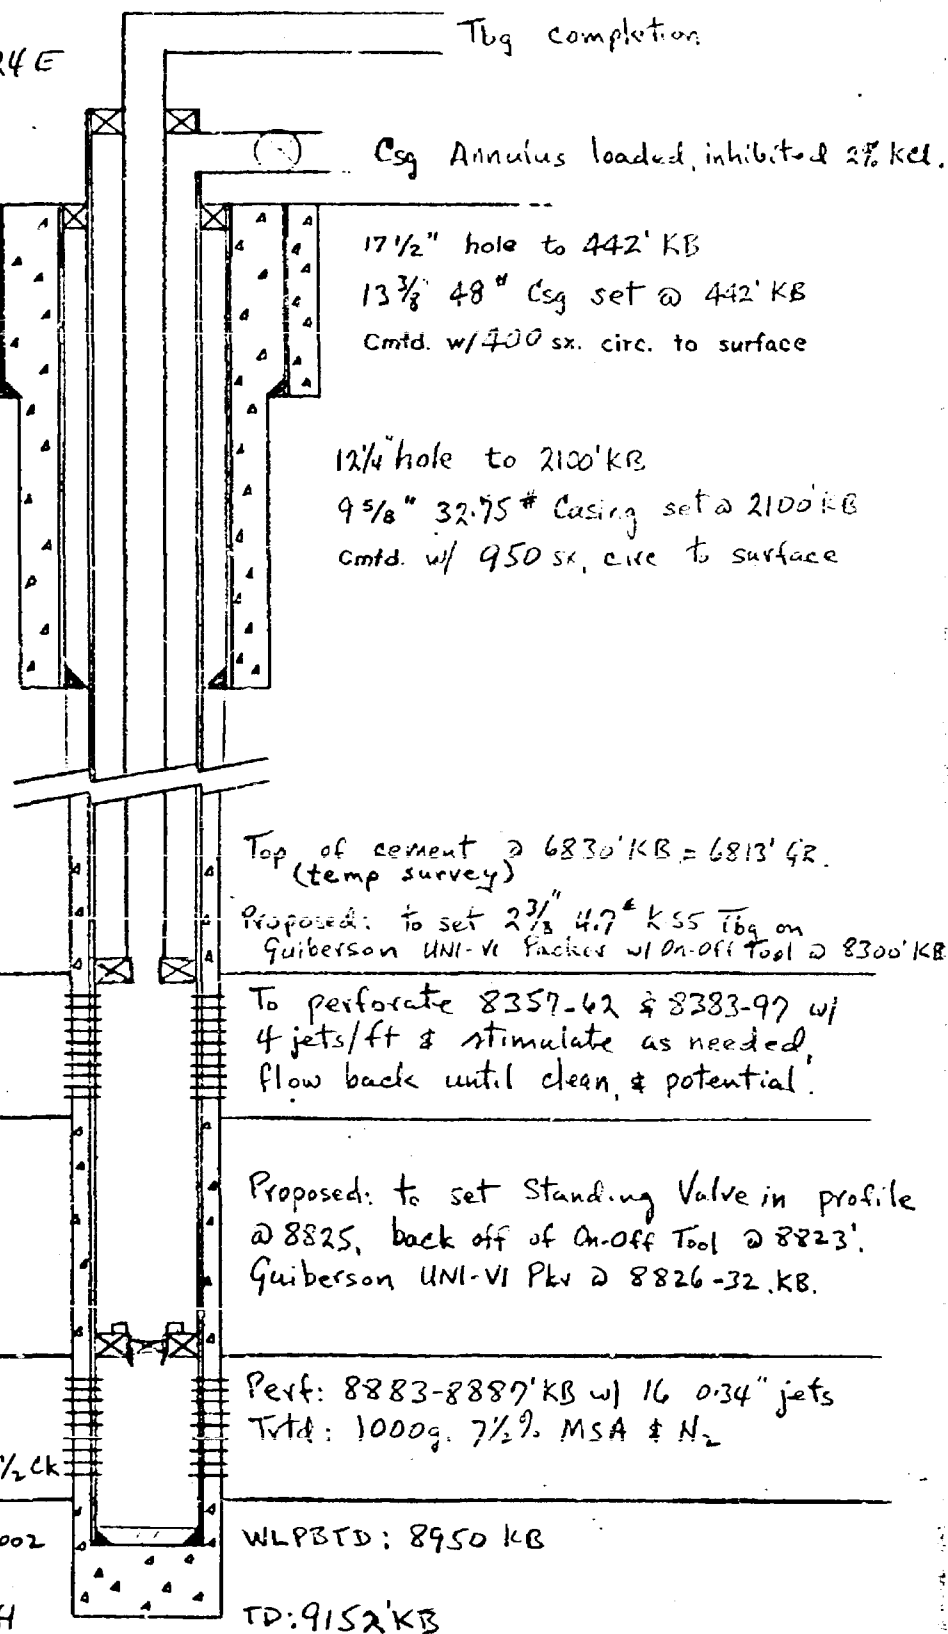 Tbg completion
24 E
Csg Annulus loaded, inhibited 2% KCl.
17 1/2" hole to 442' KB
13 3/8 48# Csg set @ 442' KB
Cmtd. w/ 400 sx. circ. to surface
12 1/4" hole to 2100' KB
9 5/8" 32.75# Casing set @ 2100' KB
Cmtd. w/ 950 sx, circ to surface
Top of cement @ 6830' KB = 6813' GR.
(temp survey)
Proposed: to set 2 3/8" 4.7# K55 Tbg on
Guiberson UNI-VI Packer w/ On-Off Tool @ 8300' KB
To perforate 8357-62 & 8383-97 w/
4 jets/ft & stimulate as needed,
flow back until clean, & potential.
Proposed: to set Standing Valve in profile
@ 8825, back off of On-Off Tool @ 8823'.
Guiberson UNI-VI Pkr @ 8826-32. KB.
Perf: 8883-8887' KB w/ 16 0.34" jets
Trtd: 1000g. 7 1/2% MSA & N2
1/2 Ck
002 WLPBTD: 8950 KB
H TD: 9152' KB